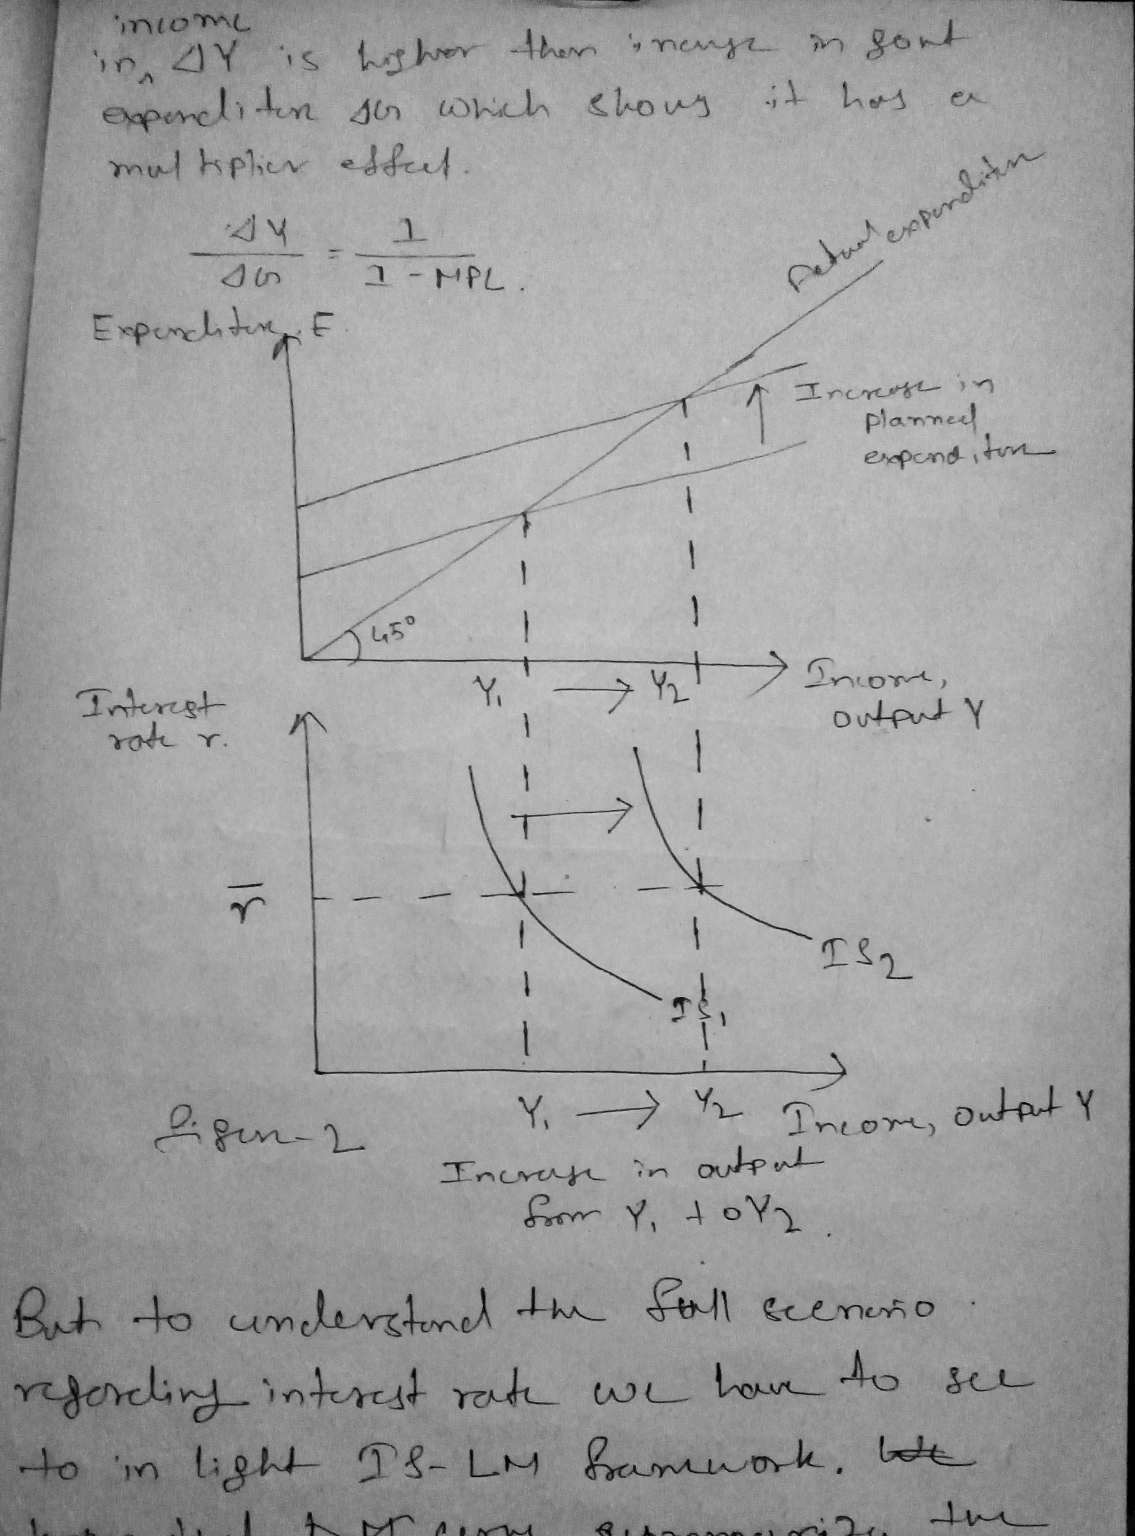 income
in ΔY is higher then increase in govt
expenditure ΔG which shows it has a
multiplier effect.
ΔY / ΔG = 1 / 1 - MPC.
Expenditure, E
Actual expenditure
Increase in
planned
expenditure
45°
Y₁ → Y₂
Income,
output Y
Interest
rate r.
r̄
IS₂
IS₁
Y₁ → Y₂
Income, output Y
figure-2
Increase in output
from Y₁ to Y₂.
But to understand the full scenario
regarding interest rate we have to see
to in light IS-LM framework. We
the